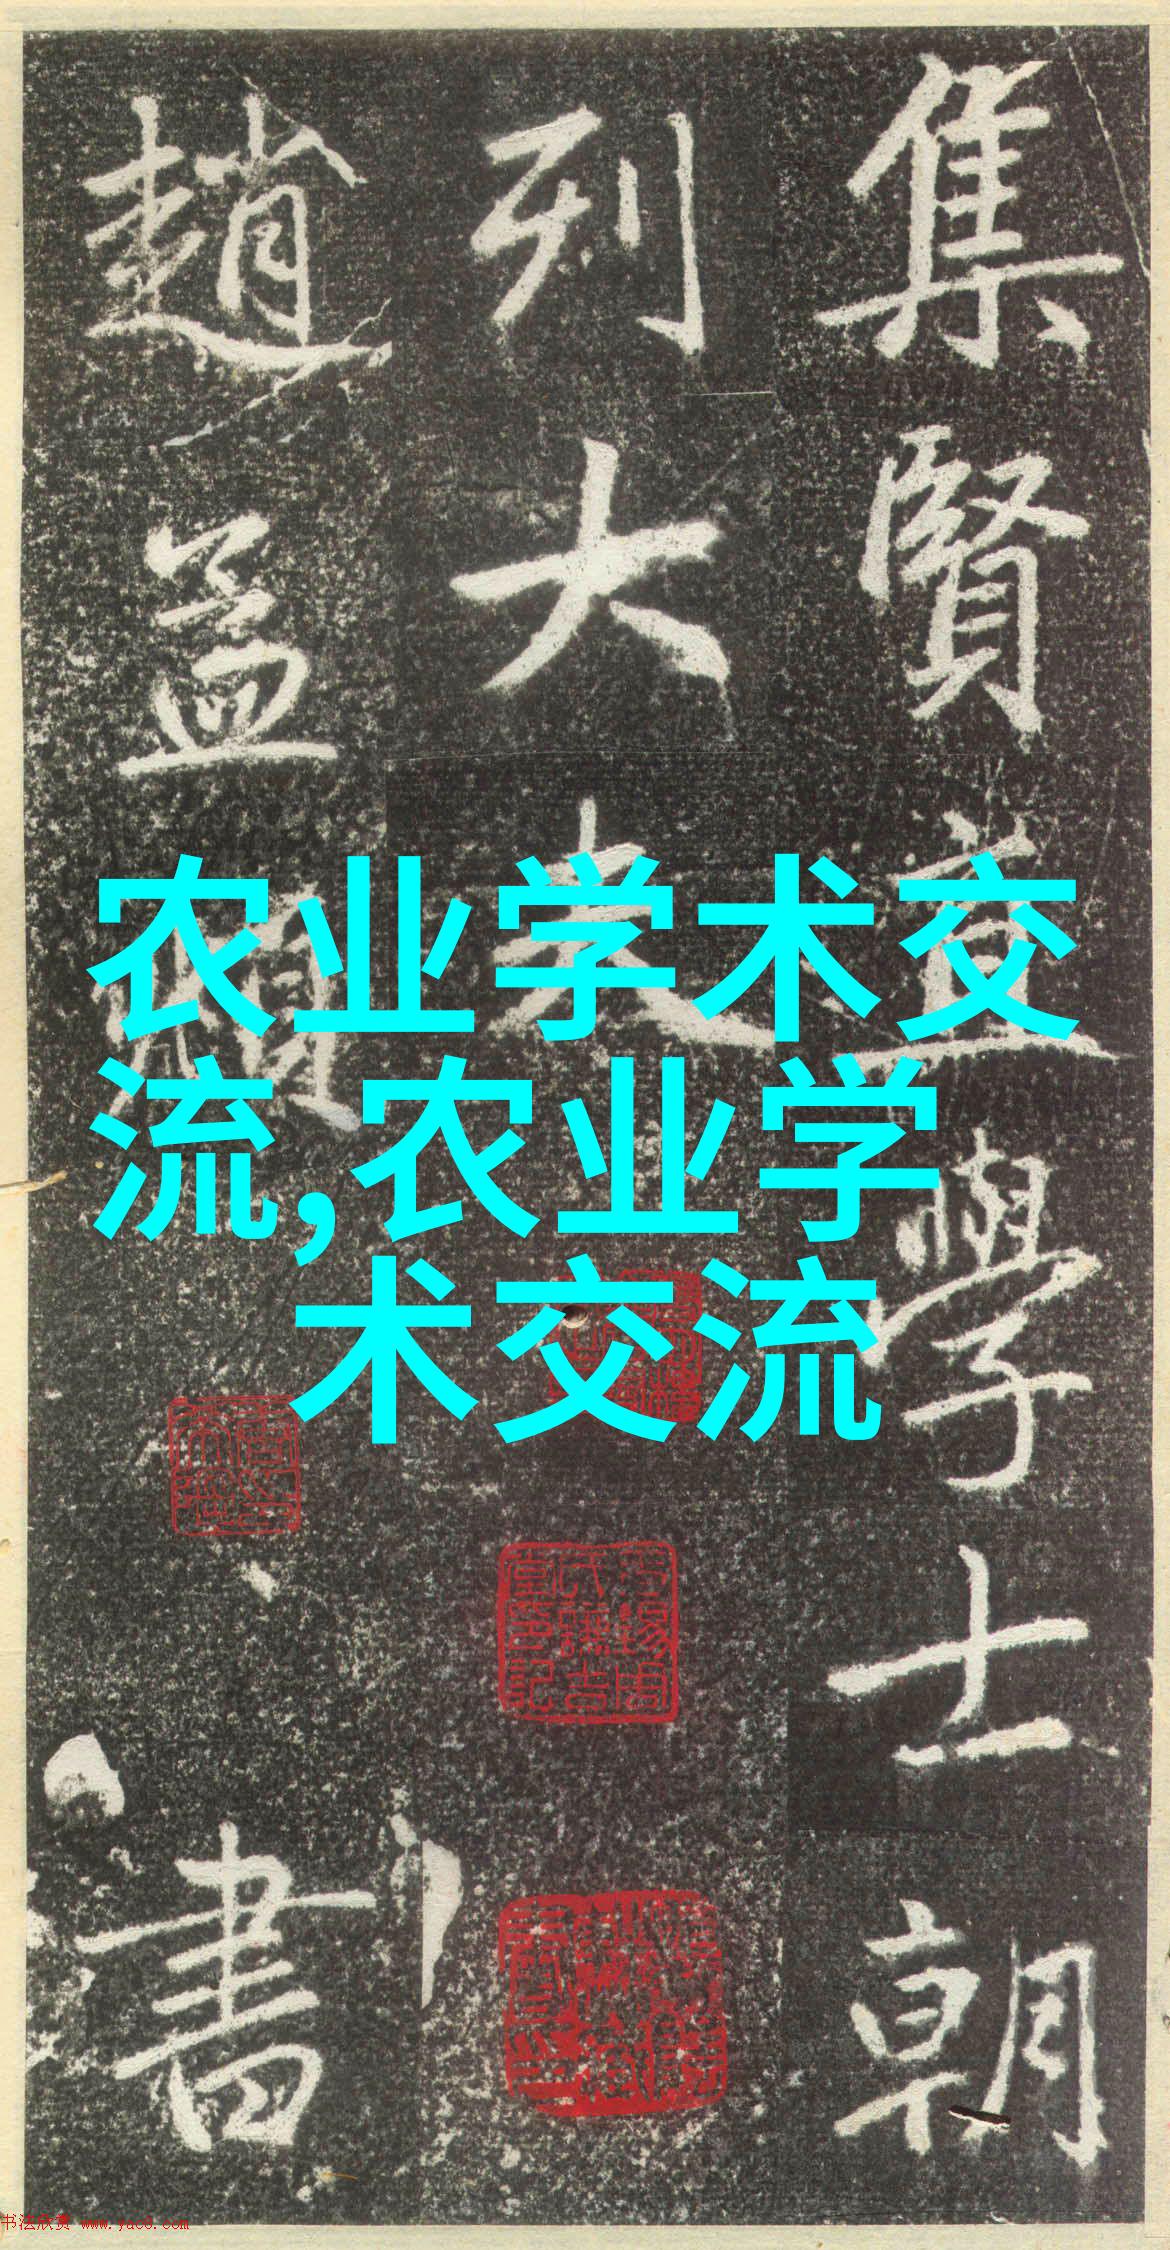 集賢直學士朝
列大夫
趙孟頫書
农业学术交
流,农业学
术交流
书法欣赏 www.yac8.com